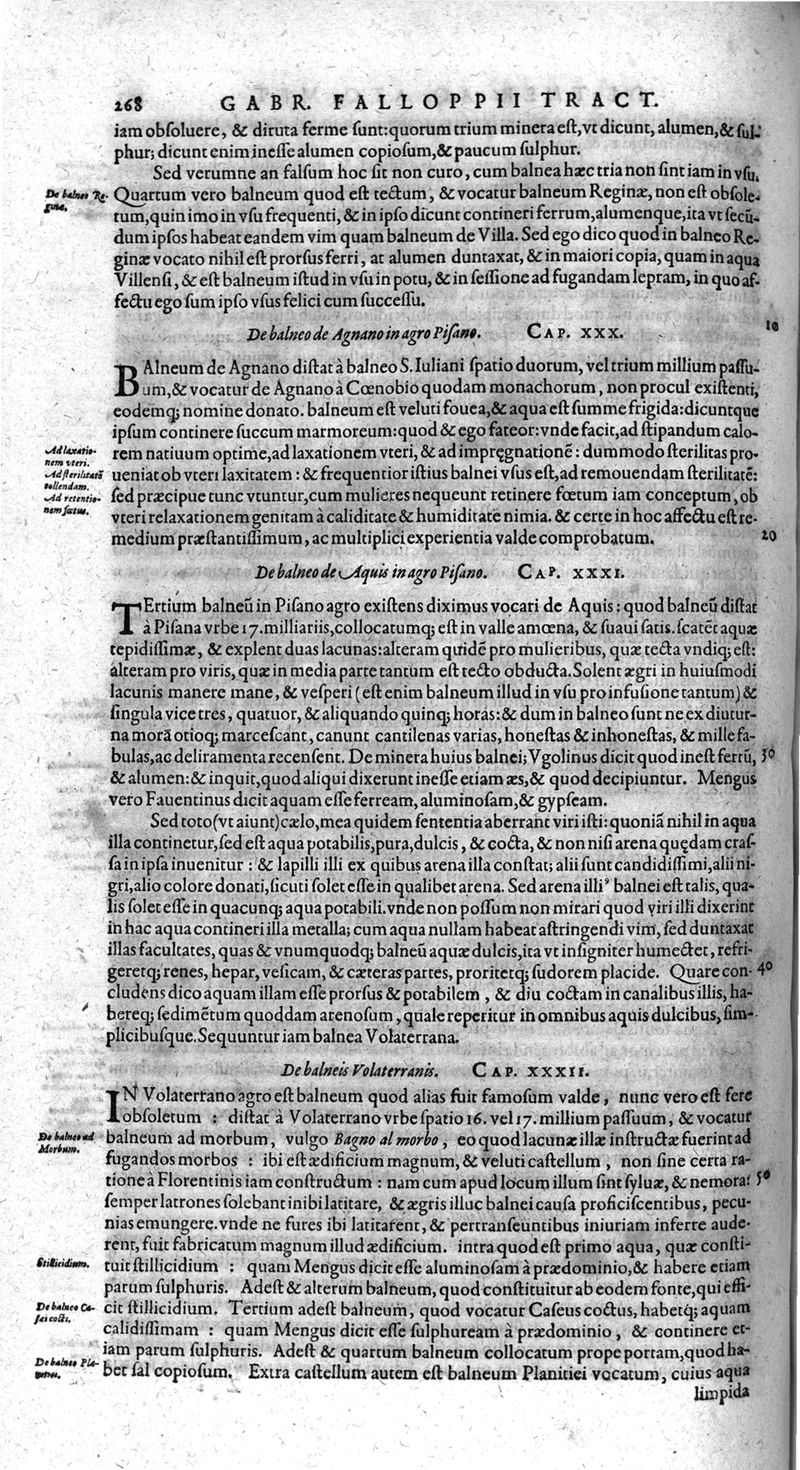 268 GABR. FALLOPPII TRACT.
iam obſoluere, & diruta ferme ſunt: quorum trium minera eſt, vt dicunt, alumen, & ſul-
phur; dicunt enim ineſſe alumen copioſum, & paucum ſulphur.
Sed verumne an falſum hoc ſit non curo, cum balnea hæc tria non ſint iam in vſu.
De balneo Re-
ginæ.
Quartum vero balneum quod eſt tectum, & vocatur balneum Reginæ, non eſt obſole-
tum, quin imo in vſu frequenti, & in ipſo dicunt contineri ferrum, alumenque, ita vt ſecū-
dum ipſos habeat eandem vim quam balneum de Villa. Sed ego dico quod in balneo Re-
ginæ vocato nihil eſt prorſus ferri, at alumen duntaxat, & in maiori copia, quam in aqua
Villenſi, & eſt balneum iſtud in vſu in potu, & in ſeſſione ad fugandam lepram, in quo af-
fectu ego ſum ipſo vſus felici cum ſucceſſu.
De balneo de Agnano in agro Piſano. CAP. XXX. 10
BAlneum de Agnano diſtat à balneo S. Iuliani ſpatio duorum, vel trium millium paſſu-
um, & vocatur de Agnano à Cœnobio quodam monachorum, non procul exiſtenti,
eodemq; nomine donato. balneum eſt veluti fouea, & aqua eſt ſumme frigida: dicuntque
ipſum continere ſuccum marmoreum: quod & ego fateor: vnde facit, ad ſtipandum calo-
Ad laxatio-
nem vteri.
rem natiuum optime, ad laxationem vteri, & ad impręgnationē: dummodo ſterilitas pro-
Ad ſterilitatē
tollendam.
ueniat ob vteri laxitatem: & frequentior iſtius balnei vſus eſt, ad remouendam ſterilitatē:
Ad retentio-
nem fœtus.
ſed præcipue tunc vtuntur, cum mulieres nequeunt retinere fœtum iam conceptum, ob
vteri relaxationem genitam à caliditate & humiditate nimia. & certe in hoc affectu eſt re-
medium præſtantiſſimum, ac multiplici experientia valde comprobatum. 20
De balneo de Aquis in agro Piſano. CAP. XXXI.
TErtium balneū in Piſano agro exiſtens diximus vocari de Aquis: quod balneū diſtat
à Piſana vrbe 17. milliariis, collocatumq; eſt in valle amœna, & ſuaui ſatis. ſcatēt aquæ
tepidiſſimæ, & explent duas lacunas: alteram quidē pro mulieribus, quæ tecta vndiq; eſt:
alteram pro viris, quæ in media parte tantum eſt tecto obducta. Solent ægri in huiuſmodi
lacunis manere mane, & veſperi (eſt enim balneum illud in vſu pro infuſione tantum) &
ſingula vice tres, quatuor, & aliquando quinq; horas: & dum in balneo ſunt ne ex diutur-
na morā otioq; marceſcant, canunt cantilenas varias, honeſtas & inhoneſtas, & mille fa-
bulas, ac deliramenta recenſent. De minera huius balnei; Vgolinus dicit quod ineſt ferrū, 30
& alumen: & inquit, quod aliqui dixerunt ineſſe etiam æs, & quod decipiuntur. Mengus
vero Fauentinus dicit aquam eſſe ferream, aluminoſam, & gypſeam.
Sed toto (vt aiunt) cælo, mea quidem ſententia aberrant viri iſti: quoniā nihil in aqua
illa continetur, ſed eſt aqua potabilis, pura, dulcis, & cocta, & non niſi arena quędam craſ-
ſa in ipſa inuenitur: & lapilli illi ex quibus arena illa conſtat; alii ſunt candidiſſimi, alii ni-
gri, alio colore donati, ſicuti ſolet eſſe in qualibet arena. Sed arena illi⁹ balnei eſt talis, qua-
lis ſolet eſſe in quacunq; aqua potabili. vnde non poſſum non mirari quod viri illi dixerint
in hac aqua contineri illa metalla; cum aqua nullam habeat aſtringendi vim, ſed duntaxat
illas facultates, quas & vnumquodq; balneū aquæ dulcis, ita vt inſigniter humectet, refri-
geretq; renes, hepar, veſicam, & cæteras partes, proritetq; ſudorem placide. Quare con- 40
cludens dico aquam illam eſſe prorſus & potabilem, & diu coctam in canalibus illis, ha-
bereq; ſedimētum quoddam arenoſum, quale reperitur in omnibus aquis dulcibus, ſim-
plicibuſque. Sequuntur iam balnea Volaterrana.
De balneis Volaterranis. CAP. XXXII.
IN Volaterrano agro eſt balneum quod alias fuit famoſum valde, nunc vero eſt fere
obſoletum: diſtat à Volaterrano vrbe ſpatio 16. vel 17. millium paſſuum, & vocatur
De balneo ad
Morbum.
balneum ad morbum, vulgo Bagno al morbo, eo quod lacunæ illæ inſtructæ fuerint ad
fugandos morbos: ibi eſt ædificium magnum, & veluti caſtellum, non ſine certa ra-
tione à Florentinis iam conſtructum: nam cum apud locum illum ſint ſyluæ, & nemora: 50
ſemper latrones ſolebant inibi latitare, & ægris illuc balnei cauſa proficiſcentibus, pecu-
nias emungere. vnde ne fures ibi latitarent, & pertranſeuntibus iniuriam inferre aude-
rent, fuit fabricatum magnum illud ædificium. intra quod eſt primo aqua, quæ conſti-
Stillicidium.
tuit ſtillicidium: quam Mengus dicit eſſe aluminoſam à prædominio, & habere etiam
parum ſulphuris. Adeſt & alterum balneum, quod conſtituitur ab eodem fonte, qui effi-
De balneo Ca-
ſei cocti.
cit ſtillicidium. Tertium adeſt balneum, quod vocatur Caſeus coctus, habetq; aquam
calidiſſimam: quam Mengus dicit eſſe ſulphuream à prædominio, & continere et-
iam parum ſulphuris. Adeſt & quartum balneum collocatum prope portam, quod ha-
De balneo Pla-
bet ſal copioſum. Extra caſtellum autem eſt balneum Planitiei vocatum, cuius aqua
limpida